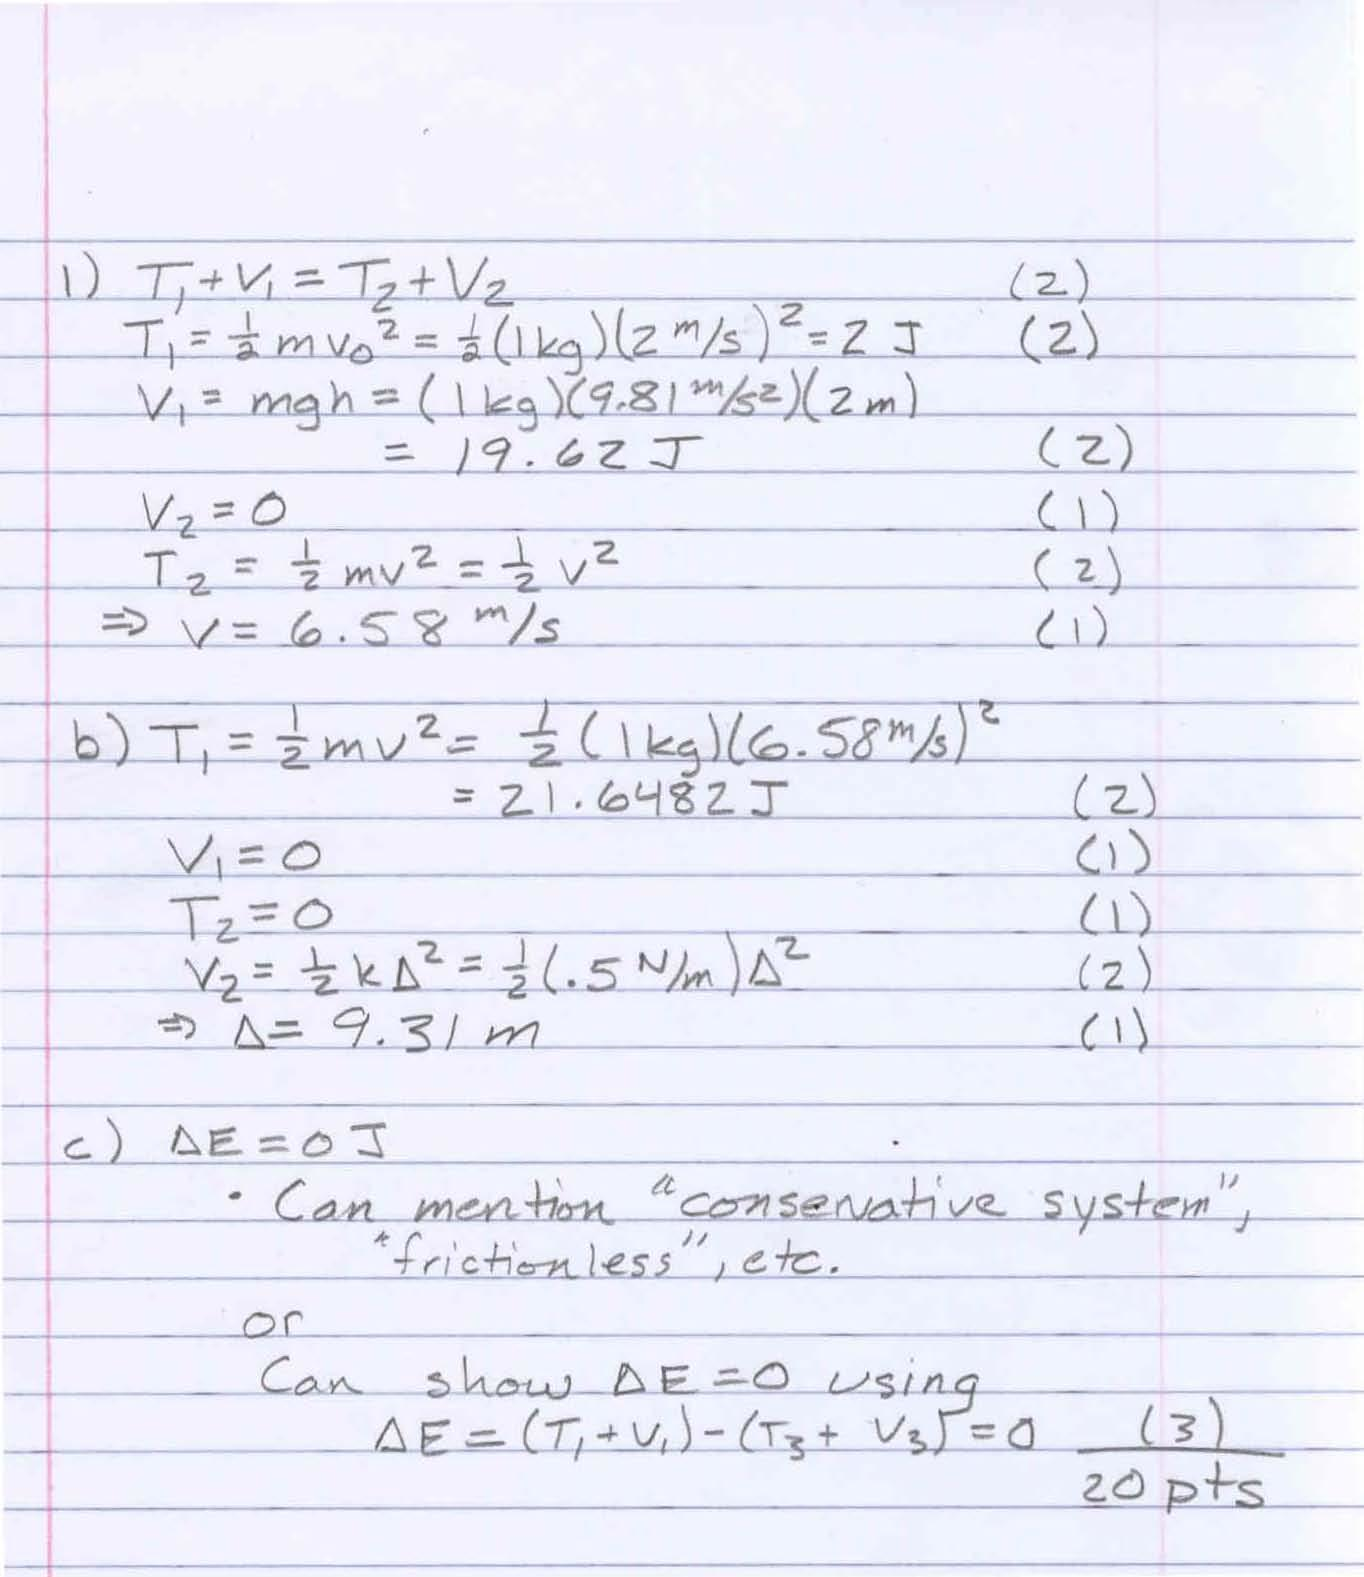 1) T₁ + V₁ = T₂ + V₂ (2)
T₁ = ½ m v₀² = ½ (1kg)(2 m/s)² = 2 J (2)
V₁ = mgh = (1 kg)(9.81 m/s²)(2m)
= 19.62 J (2)
V₂ = 0 (1)
T₂ = ½ mv² = ½ v² (2)
⇒ v = 6.58 m/s (1)
b) T₁ = ½ mv² = ½ (1kg)(6.58 m/s)²
= 21.6482 J (2)
V₁ = 0 (1)
T₂ = 0 (1)
V₂ = ½ k Δ² = ½ (.5 N/m) Δ² (2)
⇒ Δ = 9.31 m (1)
c) ΔE = 0 J
• Can mention "conservative system",
"frictionless", etc.
or
Can show ΔE = 0 using
ΔE = (T₁ + V₁) - (T₃ + V₃) = 0 (3)
20 pts